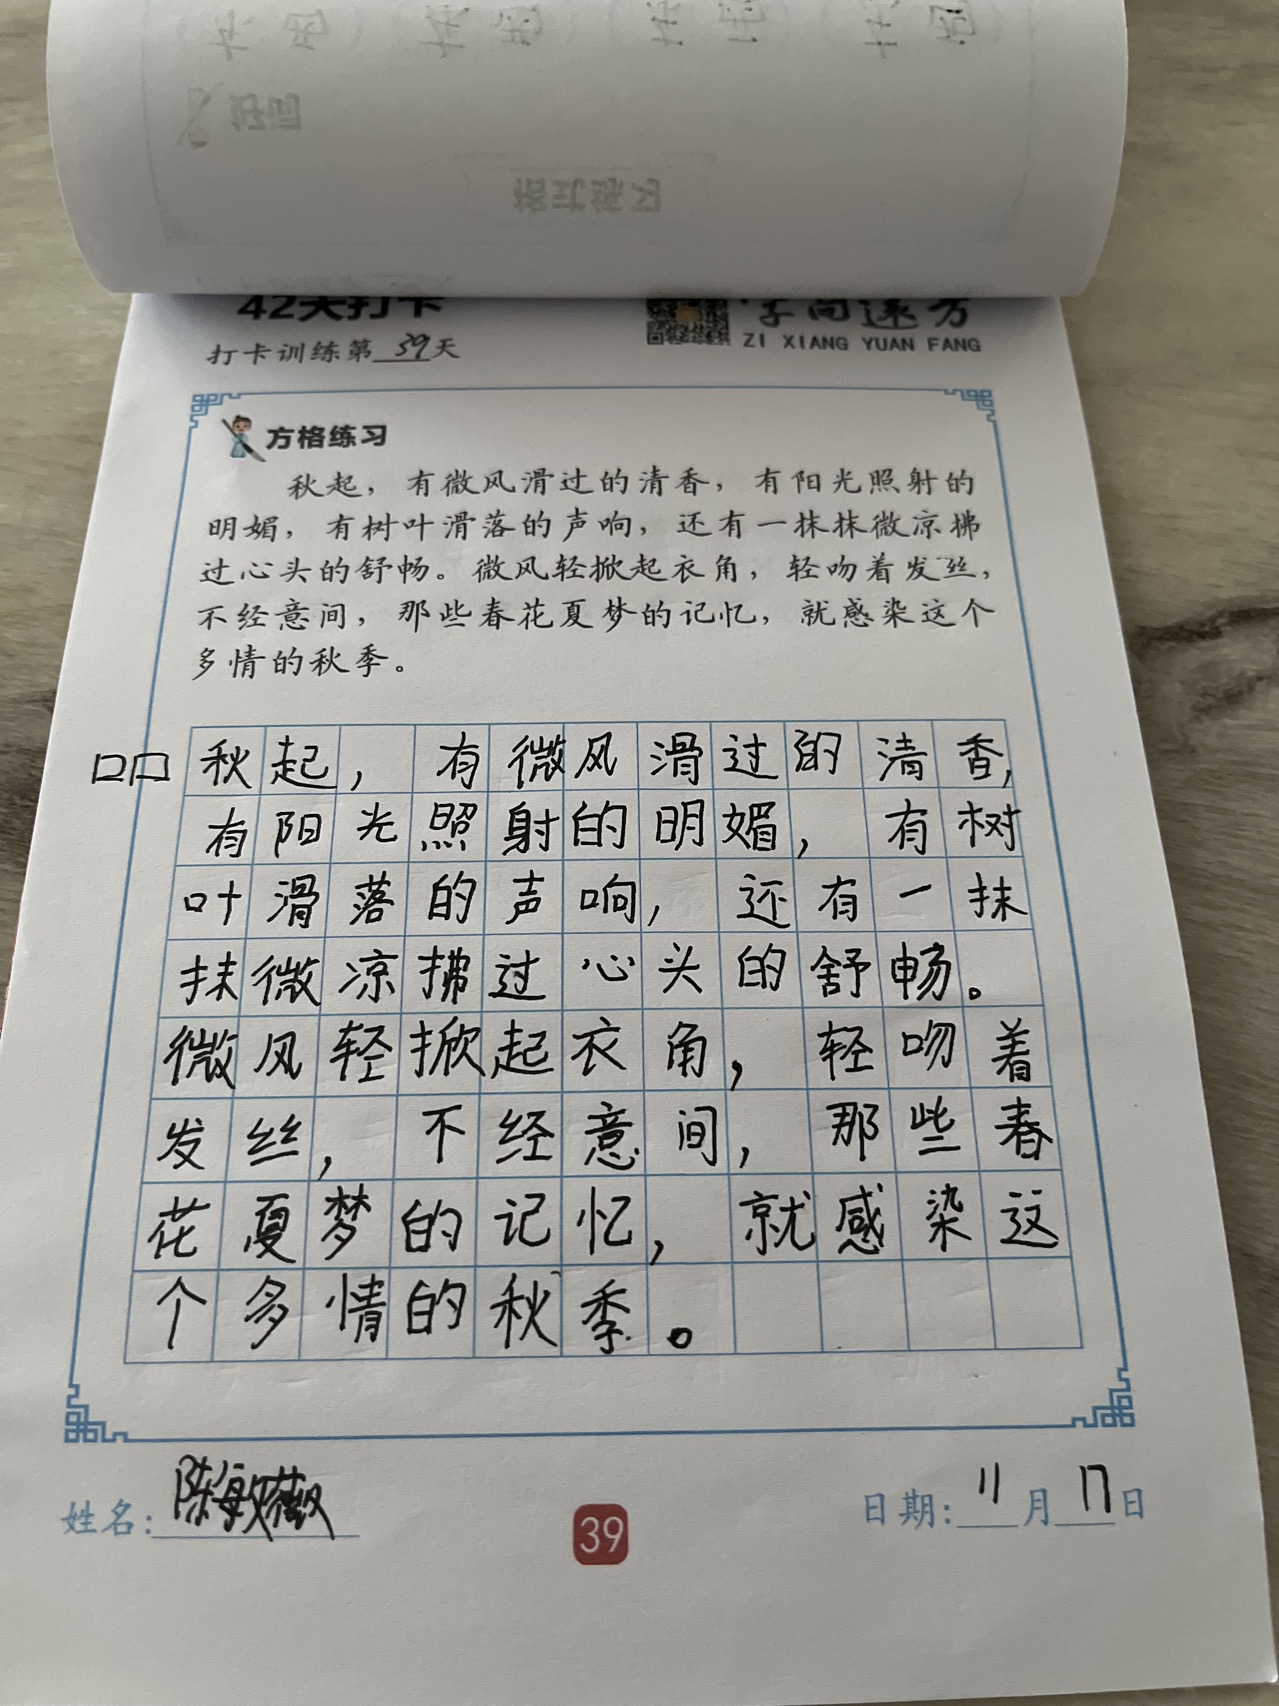 42天打卡
字向远方
ZI XIANG YUAN FANG
打卡训练第39天
方格练习
秋起，有微风滑过的清香，有阳光照射的
明媚，有树叶滑落的声响，还有一抹抹微凉拂
过心头的舒畅。微风轻掀起衣角，轻吻着发丝，
不经意间，那些春花夏梦的记忆，就感染这个
多情的秋季。
口口秋起，有微风滑过的清香，
有阳光照射的明媚，有树
叶滑落的声响，还有一抹
抹微凉拂过心头的舒畅。
微风轻掀起衣角，轻吻着
发丝，不经意间，那些春
花夏梦的记忆，就感染这
个多情的秋季。
姓名：陈敏薇
39
日期：11月17日